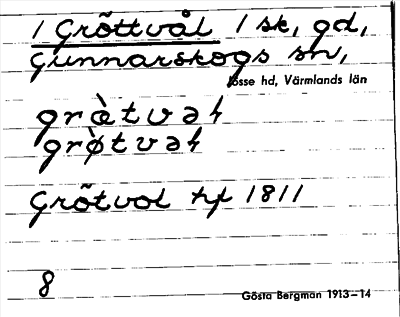 1 Gröttvål 1 sk, gd,
Gunnarskogs sn,
Jösse hd, Värmlands län
Grötvol hf 1811
8
Gösta Bergman 1913–14